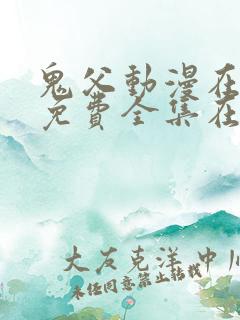 鬼父動漫在
免費全集在
大友克洋 中川
未经同意禁止转载